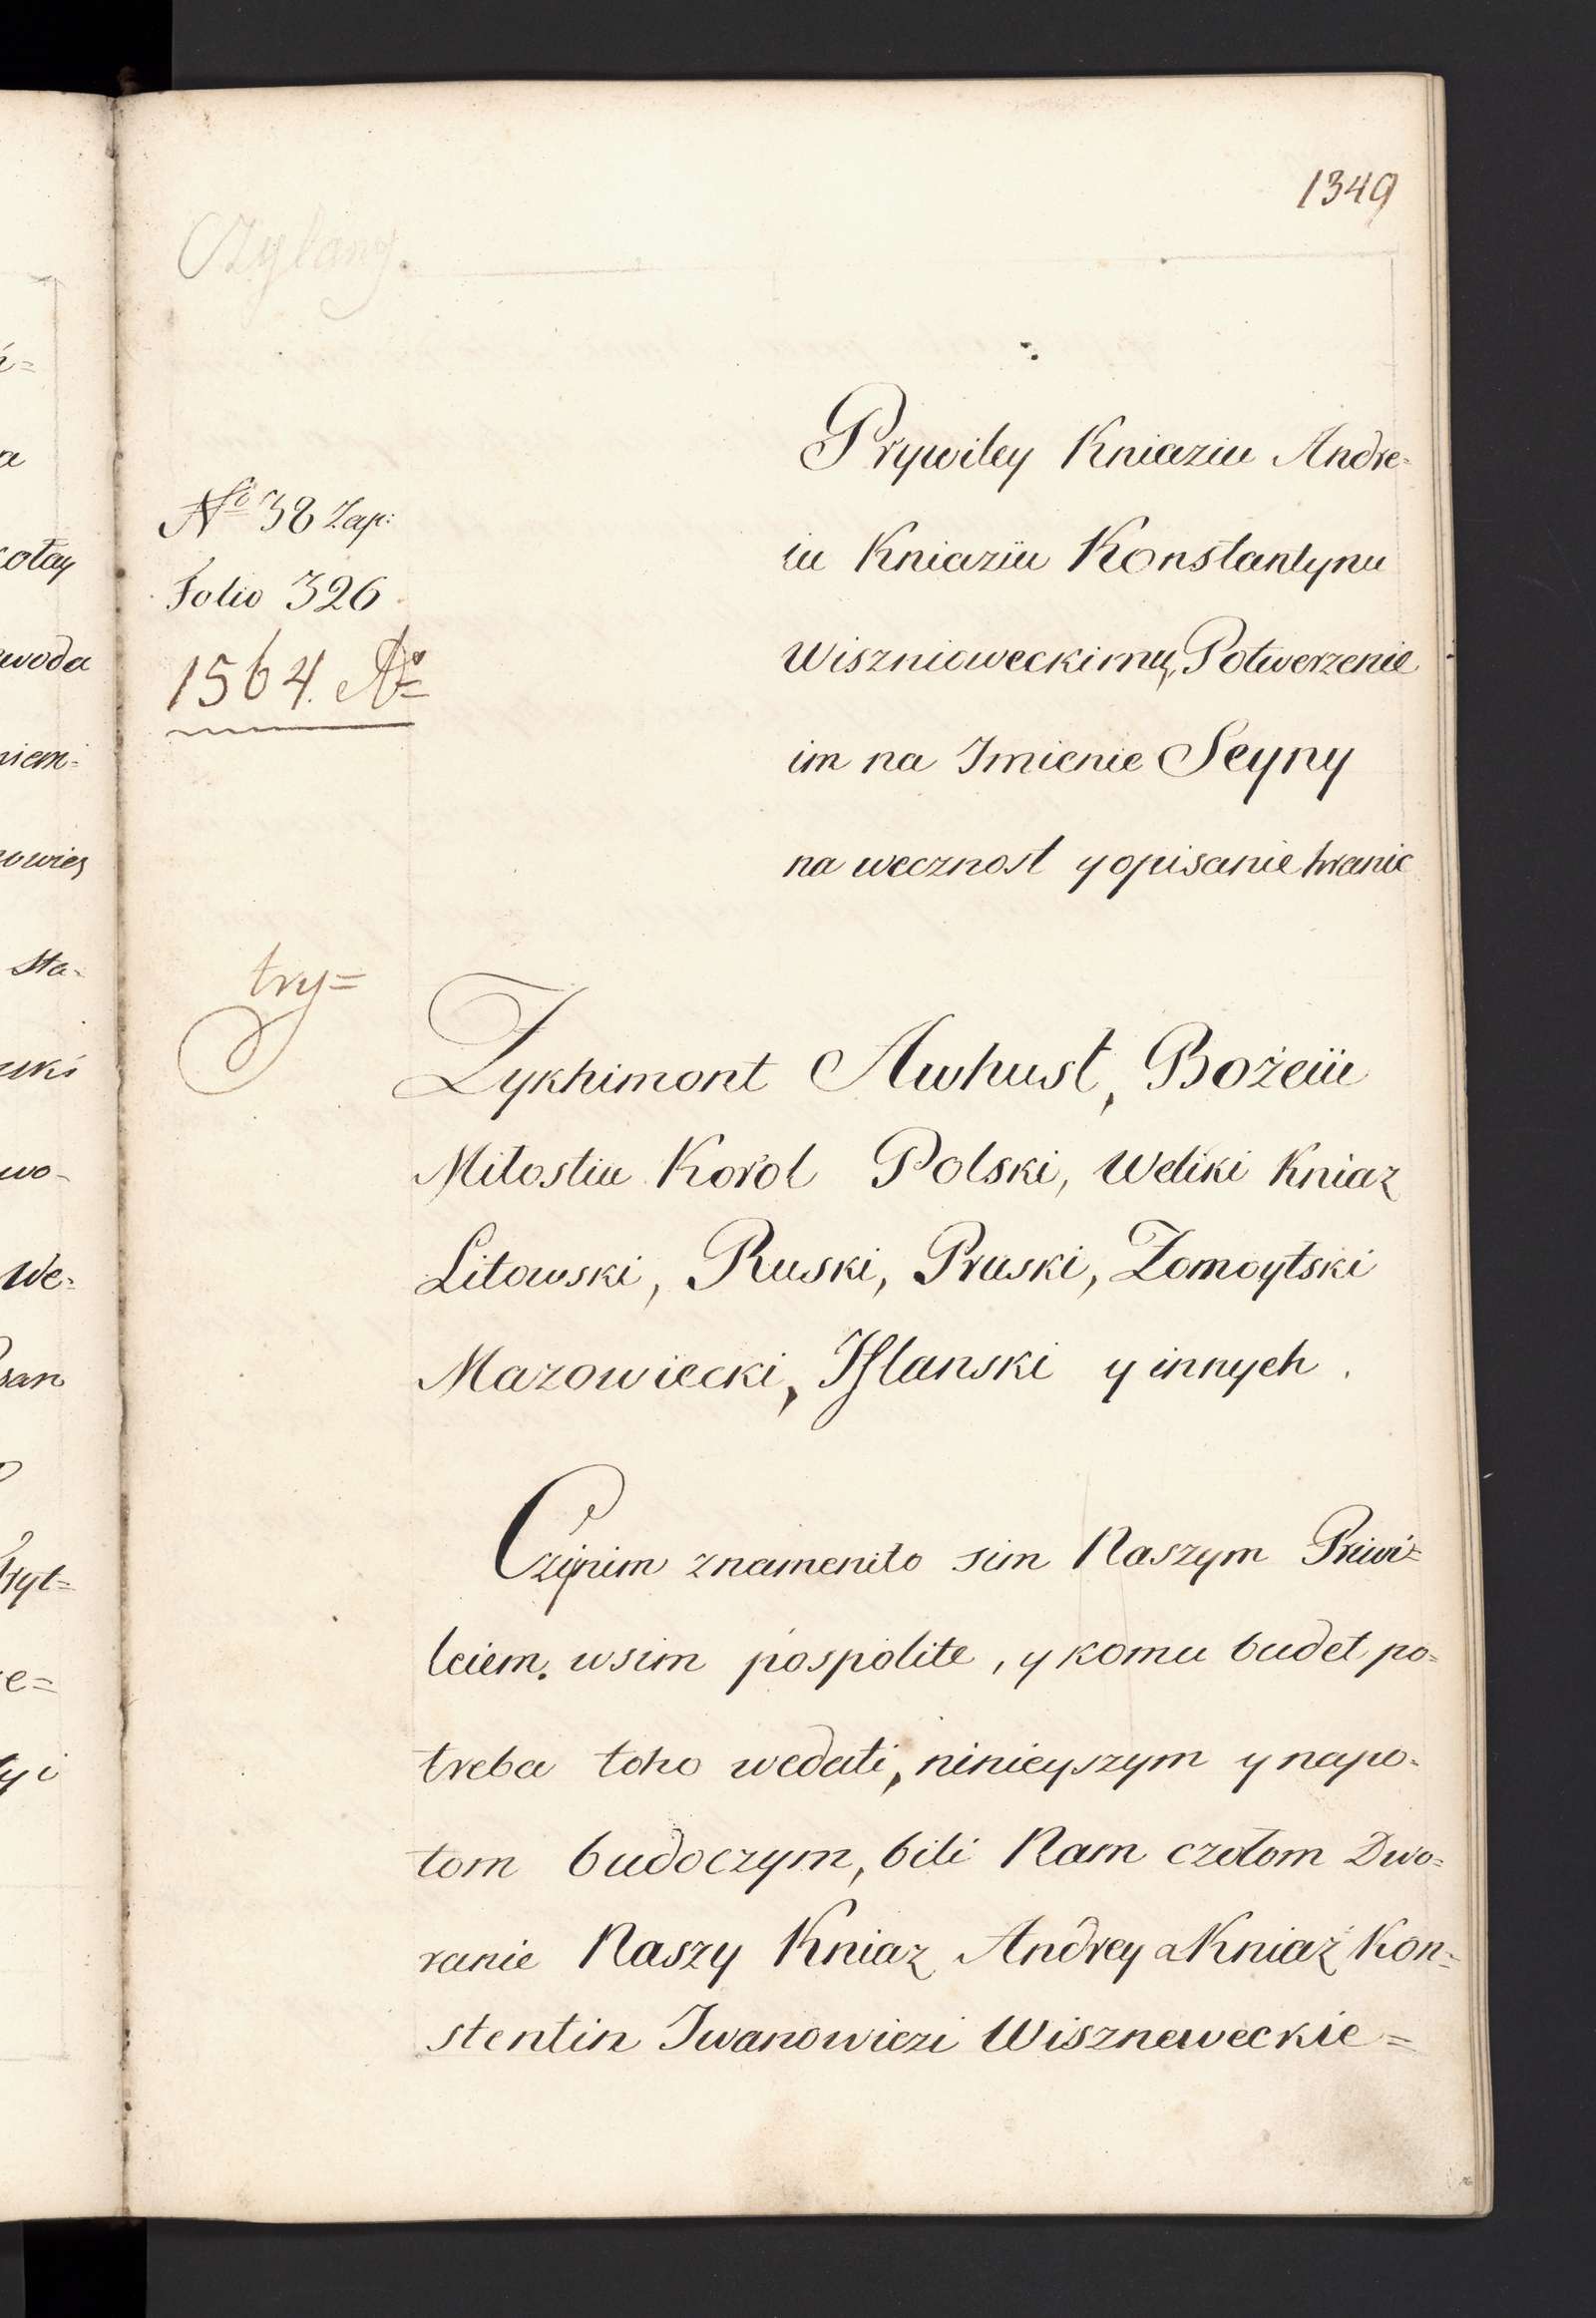 1349
Czytany.
Prywiley Kniaziu Andre-
iu Kniaziu Konstantynu
Wisznioweckimu, Potwerzenie
im na Imienie Seyny
na wecznost y opisanie hranic
No 38 Zap:
Folio 326
1564. Ao
try=
Zykhimont Awhust, Bożeiu
Miłostiu Korol Polski, Weliki Kniaz
Litowski, Ruski, Pruski, Zomoytski
Mazowiecki, Iflanski y innych.
Czynim znamenito sim Naszym Priwi=
leiem. wsim pospolite, y komu budet po=
treba toho wedati, ninieyszym y napo-
tom budoczym, bili Nam czołom Dwo=
ranie Naszy Kniaz Andrey a Kniaź Kon=
stentin Iwanowiczi Wiszneweckie=
ń=
a
kołay
woda
niem=
nowicz
sta-
wski
wo-
We=
san
Pryt=
e=
yi